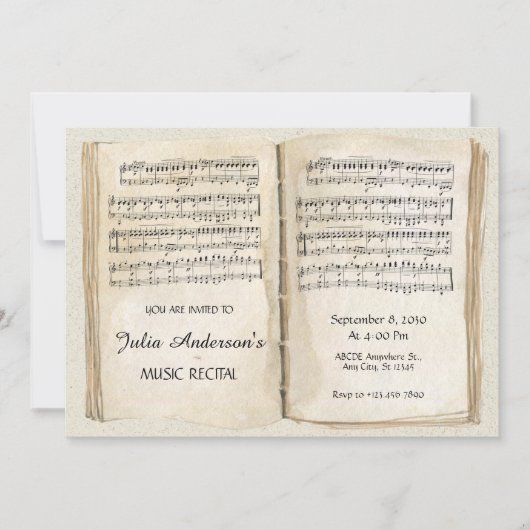 YOU ARE INVITED TO
Julia Anderson's
MUSIC RECITAL
September 8, 2030
At 4:00 Pm
ABCDE Anywhere St.,
Any City, St 12345
Rsvp to +123.456.7890